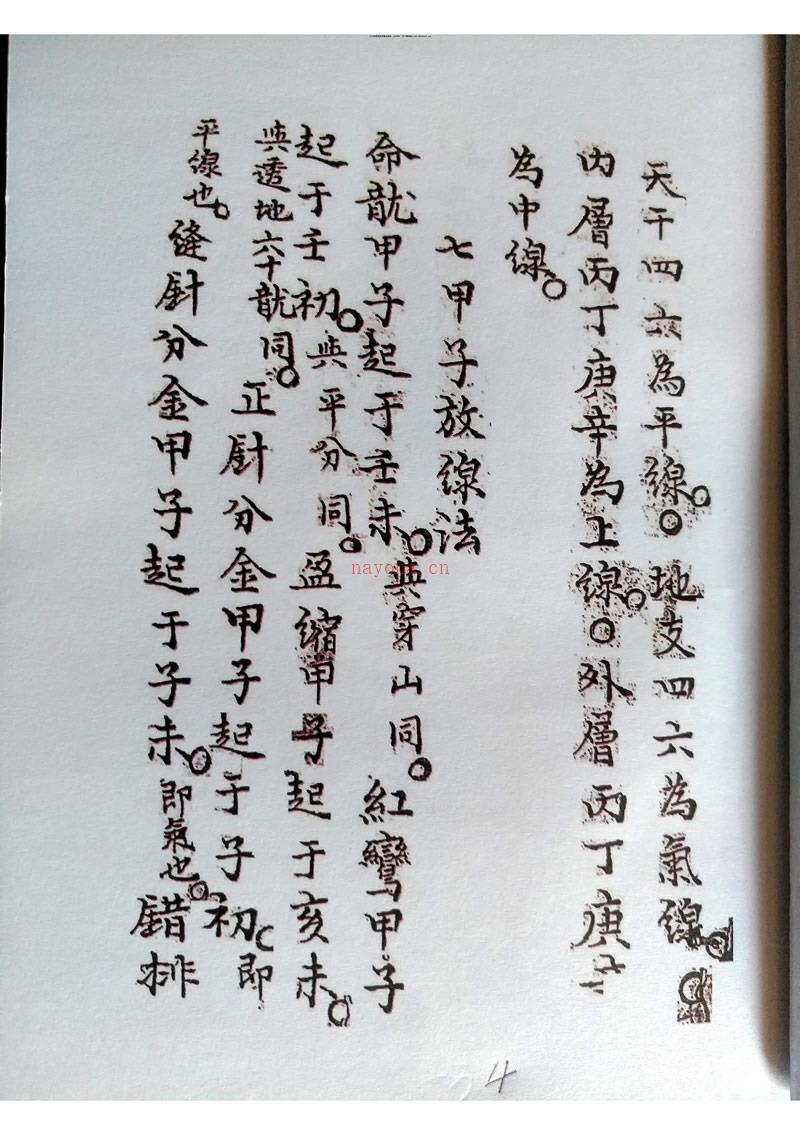 天干四六為平線。。地支四六為氣線。。
内層丙丁庚辛為上線。。外層丙丁庚
為中線。
七甲子放線法
命龍甲子起于壬未。與穿山同。紅鸞甲子
起于壬初。與平分同。盈縮甲子起于亥未。
與透地六十龍同。正針分金甲子起于子初。即
平線也。縫針分金甲子起于子未。即氣也。錯排
nayona.cn
4